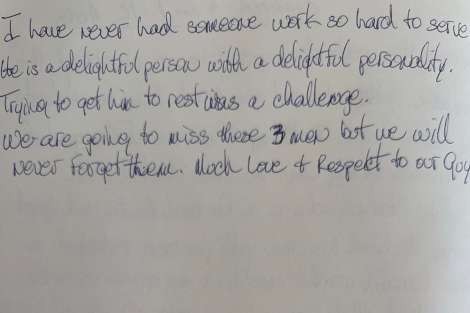 I have never had someone work so hard to serve
He is a delightful person with a delightful personality.
Trying to get him to rest was a challenge.
We are going to miss these 3 men but we will
never forget them. Much Love + Respekt to our Guy